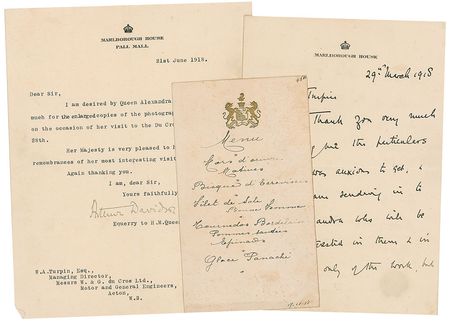 MARLBOROUGH HOUSE
PALL MALL.
21st June 1918.
Dear Sir,
I am desired by Queen Alexandra
much for the enlarged copies of the photograp
on the occasion of her visit to the Du Cro
28th.
Her Majesty is very pleased to h
remembrances of her most interesting visit
Again thanking you.
I am, dear Sir,
Yours faithfully
Arthur Davidso
Equerry to H.M.Quee
W.A.Turpin, Esq.,
Managing Director,
Messrs W. & G. du Cros Ltd.,
Motor and General Engineers,
Acton,
W.3.
Menu
Hors d'oeuvre
Bisque d'Ecrevisses
Filet de Sole
Bonne Femme
Tournedos Bordelaise
Pommes sautees
Epinards
Glace Panaché
MARLBOROUGH HOUSE
29th March 1918
Turpin
Thank you very much
the particulars
was anxious to get, &
am sending in to
andra who will be
ested in them & in
only of this work, but